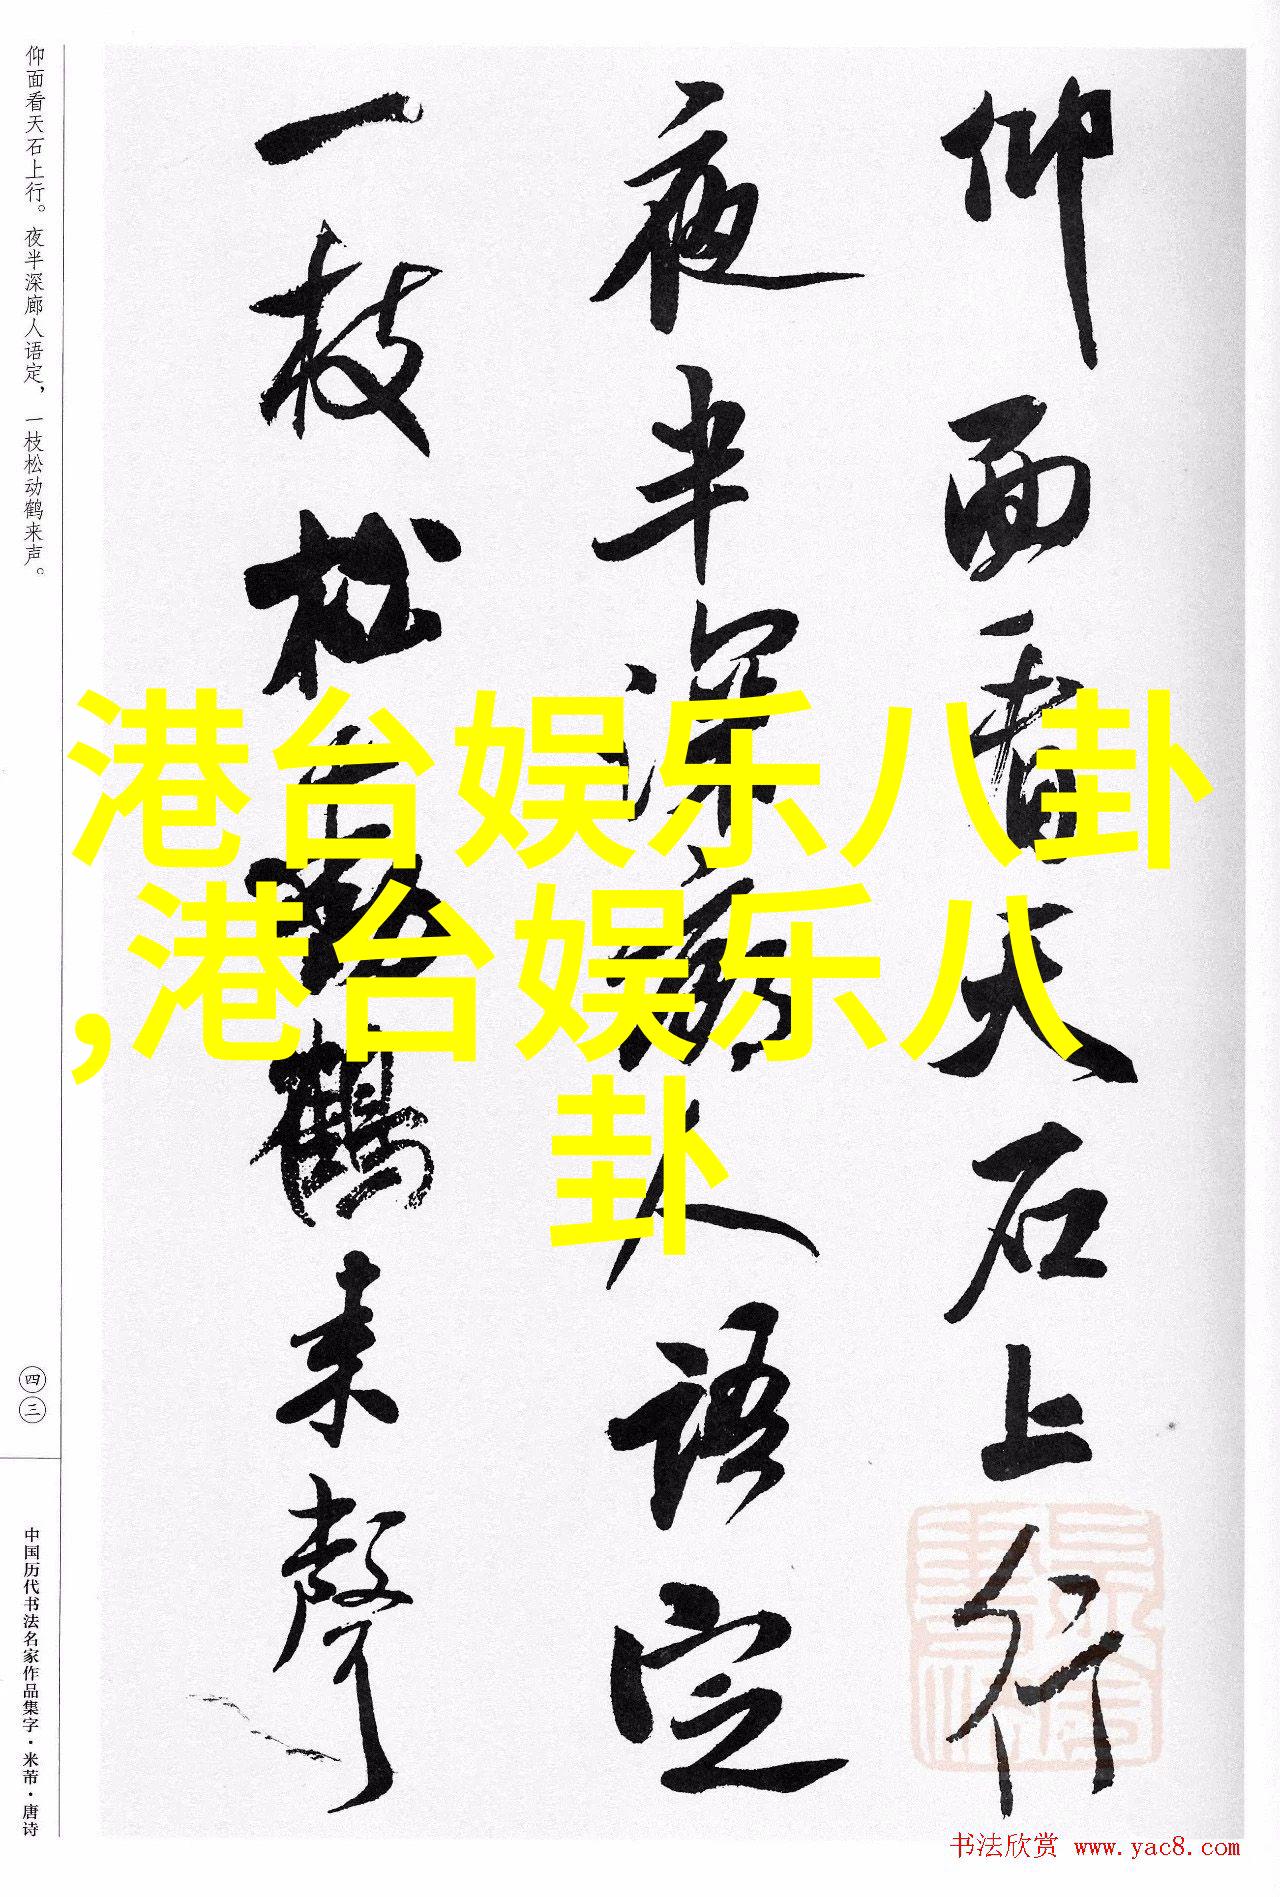 仰面看天石上行
夜半深廊人语定
一枝松动鹤来聲
仰面看天石上行。夜半深廊人语定，一枝松动鹤来声。
港台娱乐八卦
,港台娱乐八
卦
四三
中国历代书法名家作品集字·米芾·唐诗
书法欣赏 www.yac8.com